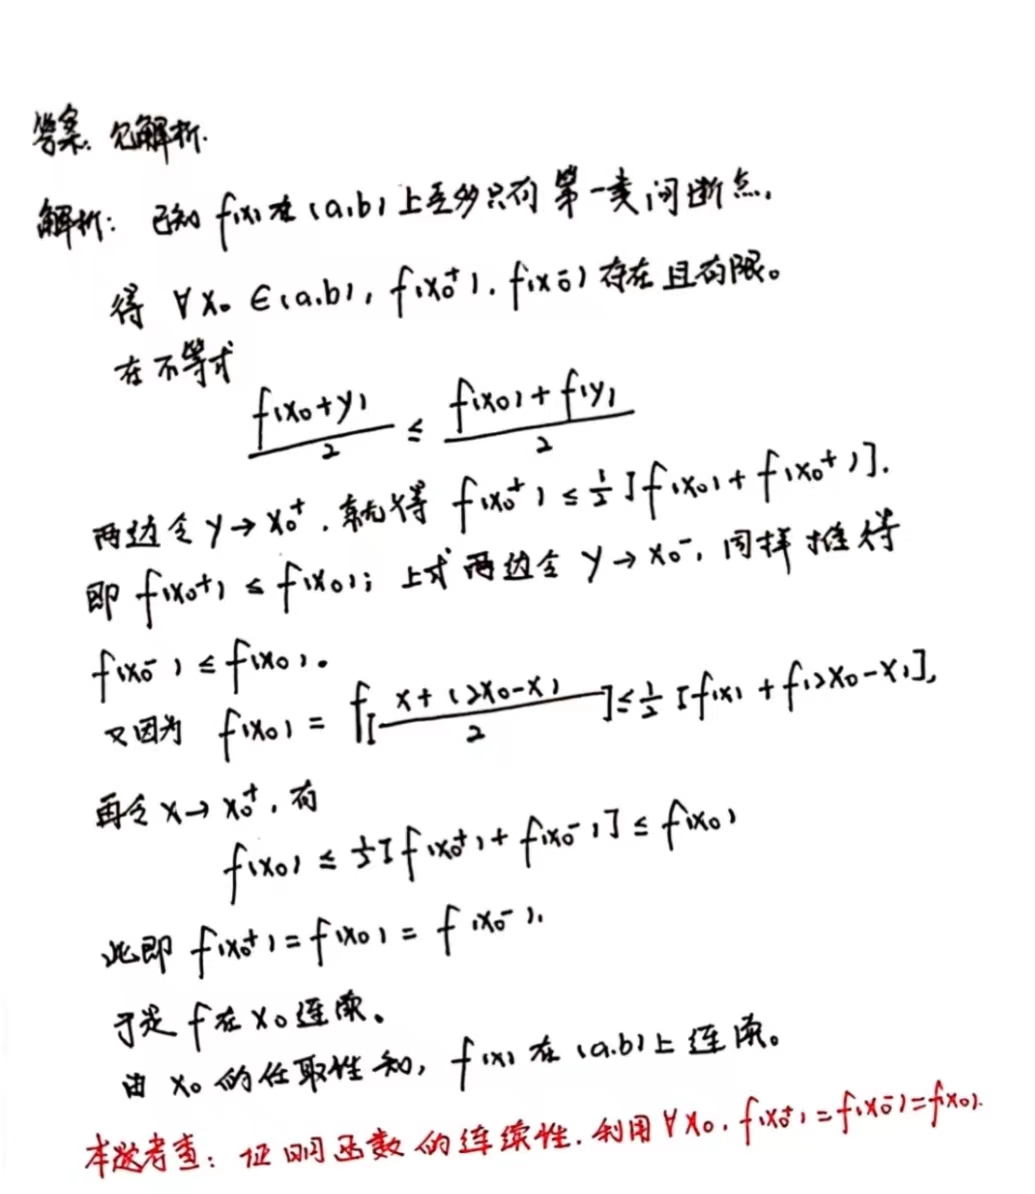 答案: 见解析.
解析: 已知 f(x) 在 (a.b) 上至多只有第一类间断点,
得 ∀x₀ ∈(a.b), f(x₀⁺). f(x₀⁻) 存在且有限。
在不等式
f(x₀+y)/2 ≤ (f(x₀)+f(y))/2
两边令 y→x₀⁺. 就得 f(x₀⁺) ≤ ½[f(x₀)+f(x₀⁺)].
即 f(x₀⁺) ≤ f(x₀); 上式两边令 y→x₀⁻, 同样推得
f(x₀⁻) ≤ f(x₀).
又因为 f(x₀) = f[(x+(2x₀-x))/2] ≤ ½[f(x)+f(2x₀-x)],
再令 x→x₀⁺, 有
f(x₀) ≤ ½[f(x₀⁺)+f(x₀⁻)] ≤ f(x₀)
此即 f(x₀⁺)=f(x₀)=f(x₀⁻).
于是 f 在 x₀ 连续。
由 x₀ 的任取性知, f(x) 在 (a.b) 上连续。
本题考查: 证明函数的连续性. 利用 ∀x₀, f(x₀⁺)=f(x₀⁻)=f(x₀).